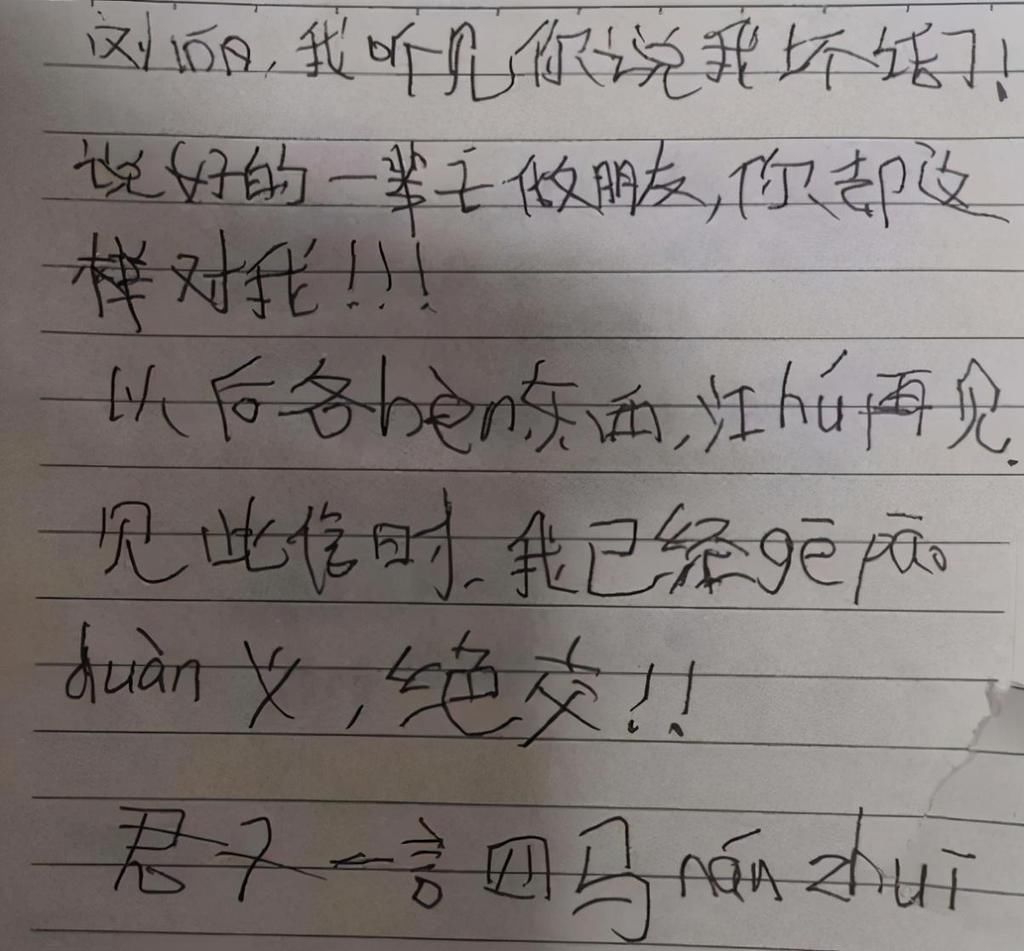 刘佰, 我听见你说我坏话了!
说好的一辈子做朋友,你却这
样对我!!!
以后各bèn东西,江hú再见.
见此信时.我已经gē pāo
duàn 义,绝交!!
君子一言四马nán zhuī